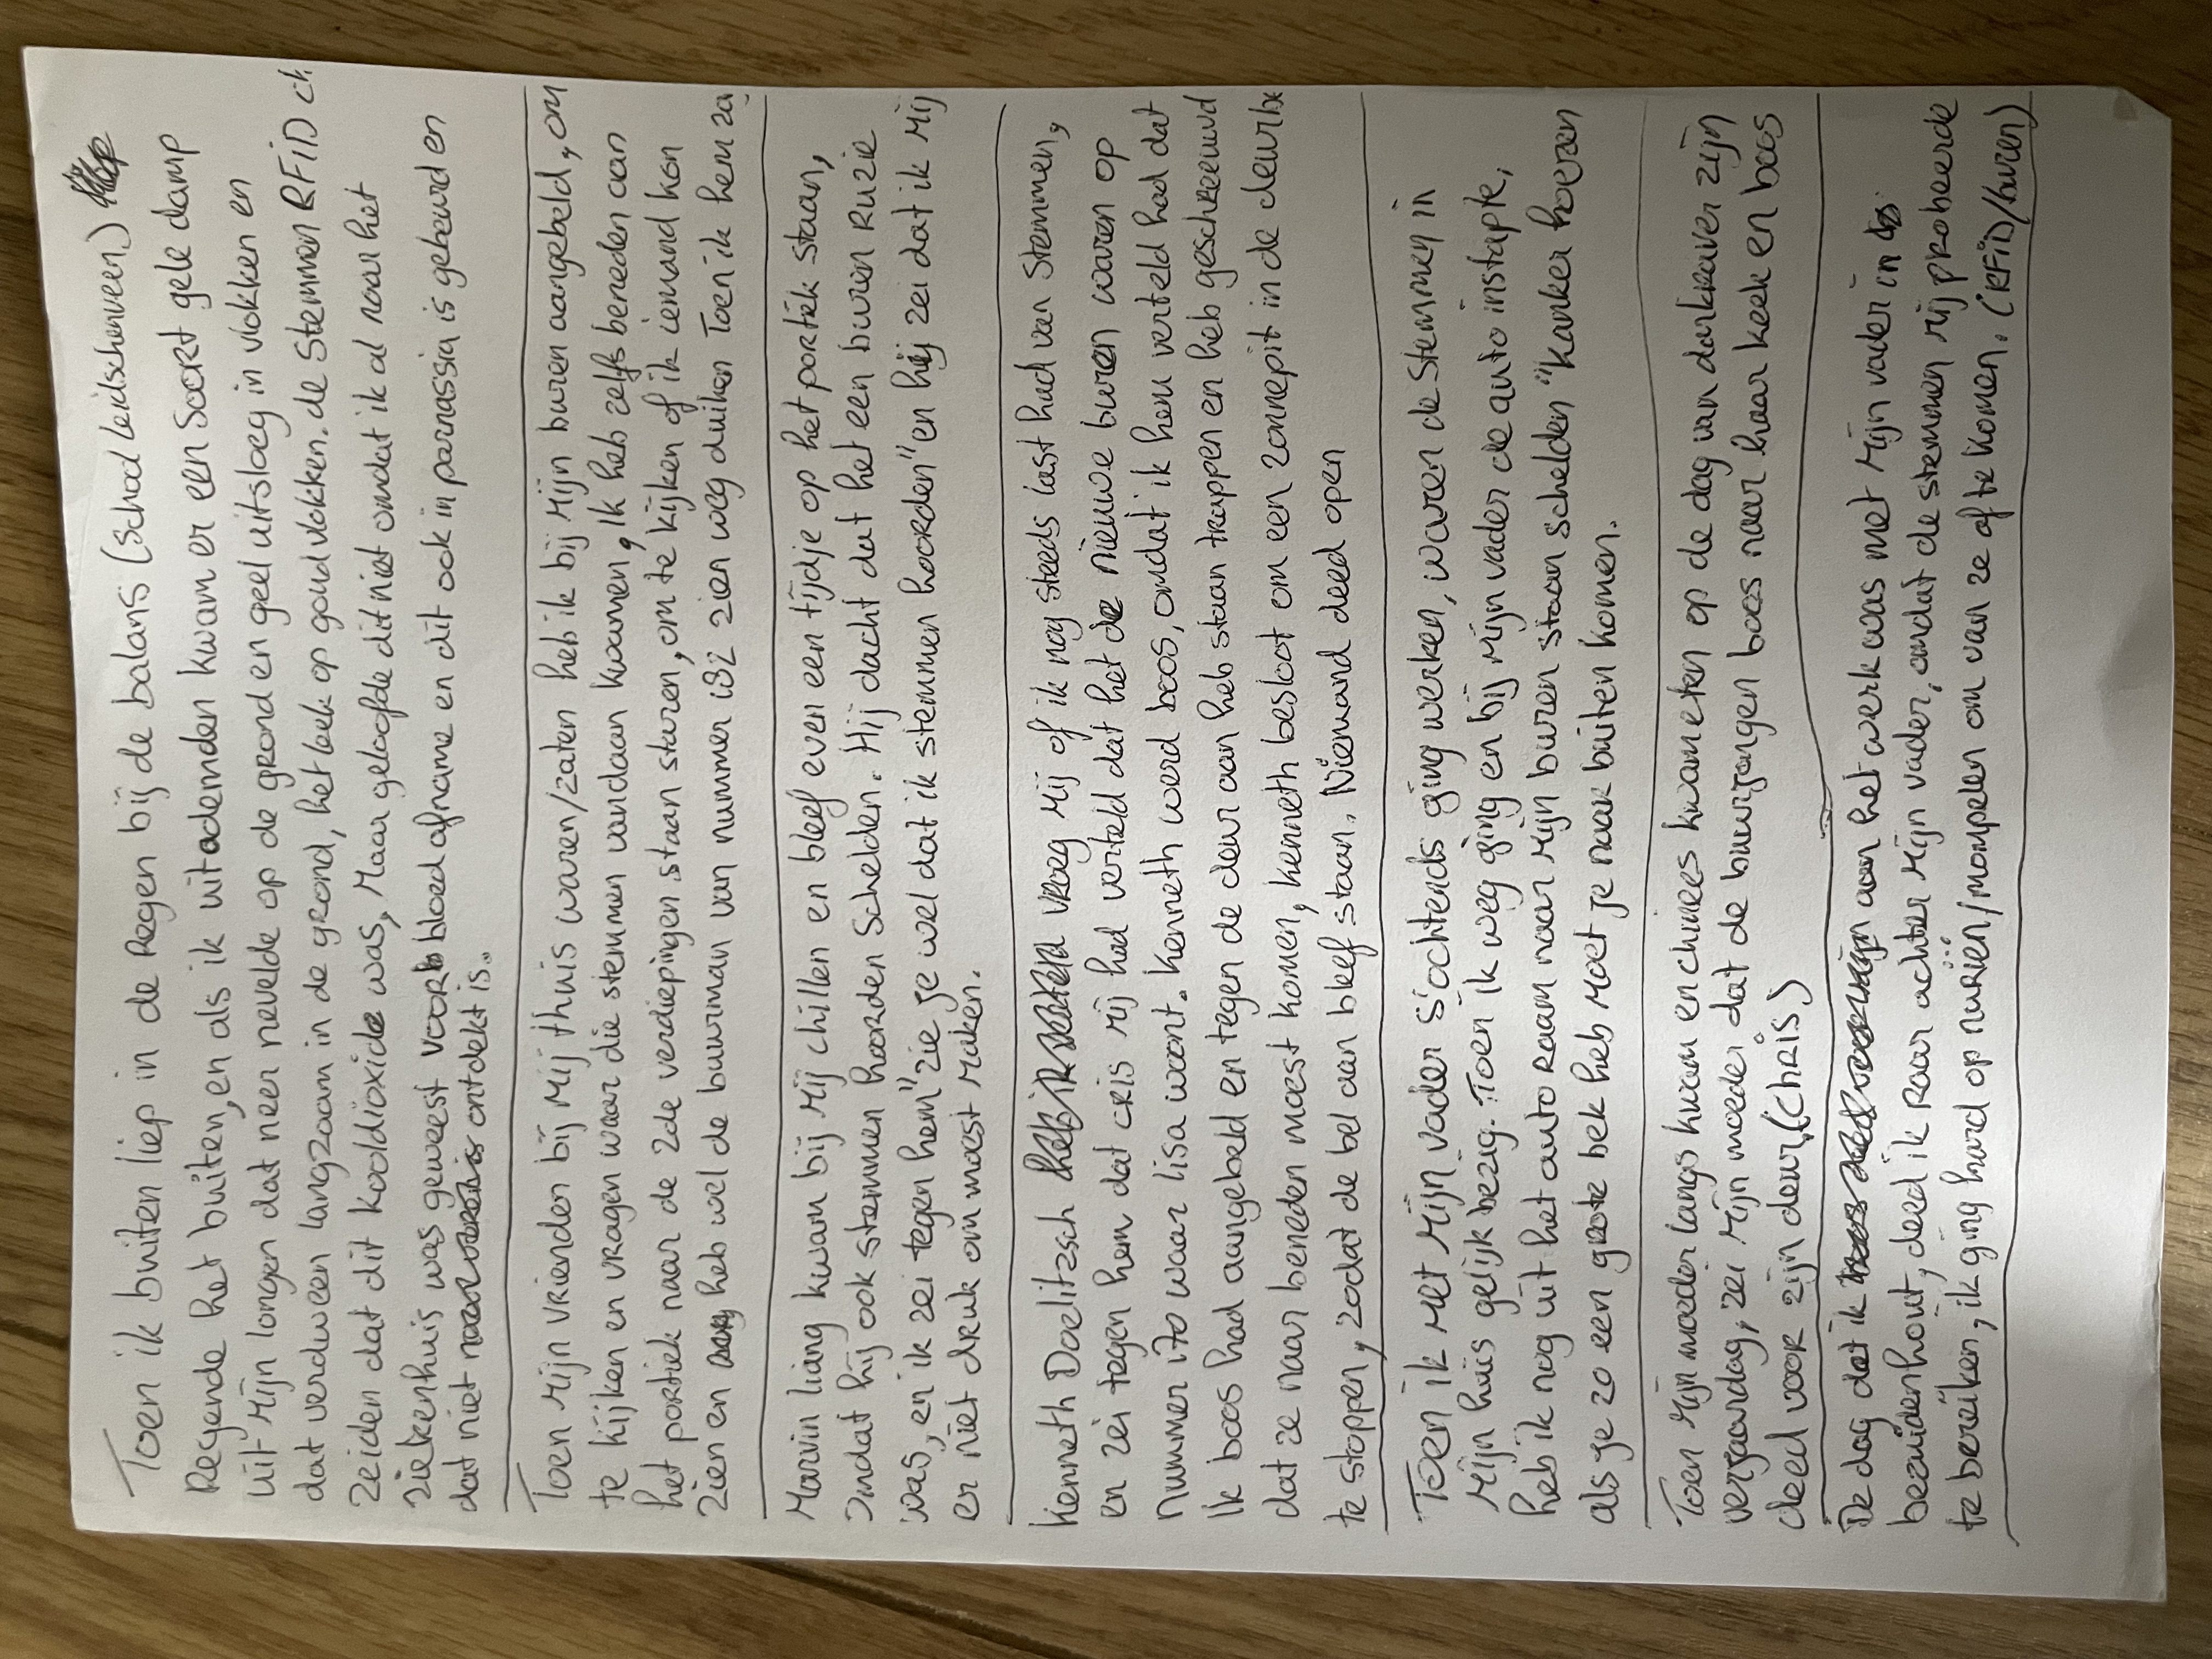 Toen ik buiten liep in de Regen bij de balans (school Leidschenveen)
Regende het buiten, en als ik uitademden kwam er een Soort gele damp
uit mijn longen dat neer nevelde op de grond en geel uitsloeg in vlokken en
dat verdween langzaam in de grond, het leek op goud vlokken. de Stemmen RFiD ch
zeiden dat dit kooldioxide was, Maar geloofde dit niet omdat ik al naar het
ziekenhuis was geweest voor bloed afname en dit ook in parnassia is gebeurd en
dat niet ontdekt is.
Toen mijn vrienden bij Mij thuis waren/zaten heb ik bij mijn buren aangebeld, om
te kijken en vragen waar die stemmen vandaan kwamen, Ik heb zelfs beneden aan
het portiek naar de 2de verdiepingen staan staren, om te kijken of ik iemand kon
zien en heb wel de buurman van nummer 132 zien weg duiken Toen ik hem zag
Marvin liang kwam bij Mij chillen en bleef even een tijdje op het portiek staan,
Omdat hij ook stemmen hoorden Schelden. Hij dacht dat het een buren Ruzie
was, en ik zei tegen hem "zie je wel dat ik stemmen hoorden" en hij zei dat ik Mij
er niet druk om moest Maken.
Kenneth Doelitzsch vroeg Mij of ik nog steeds last had van Stemmen,
en zei tegen hem dat cris Mij had verteld dat het de nieuwe buren waren op
nummer 170 waar lisa woont. Kenneth werd boos, omdat ik hem verteld had dat
Ik boos had aangebeld en tegen de deur aan heb staan trappen en heb geschreeuwd
dat ze naar beneden moest komen, kenneth besloot om een zonnepit in de deurbe
te stoppen, zodat de bel aan bleef staan. Niemand deed open
Toen ik Met Mijn vader s'ochtends ging werken, waren de Stemmen in
Mijn huis gelijk bezig. Toen ik weg ging en bij Mijn vader de auto instapte,
heb ik nog uit het auto Raam naar Mijn buren staan schelden "kanker hoeren
als je zo een grote bek heb Moet je naar buiten komen.
Toen Mijn moeder langs kwam en chinees kwam eten op de dag van darkraver zijn
verjaardag, zei Mijn moeder dat de buurjongen boos naar haar keek en boos
deed voor zijn deur, (Chris)
De dag dat ik aan het werk was met Mijn vader in
bezuidenhout, deed ik Raar achter Mijn vader, omdat de stemmen Mij probeerde
te bereiken, ik ging hard op nuriën/mompelen om van ze af te komen. (RFiD/buren)